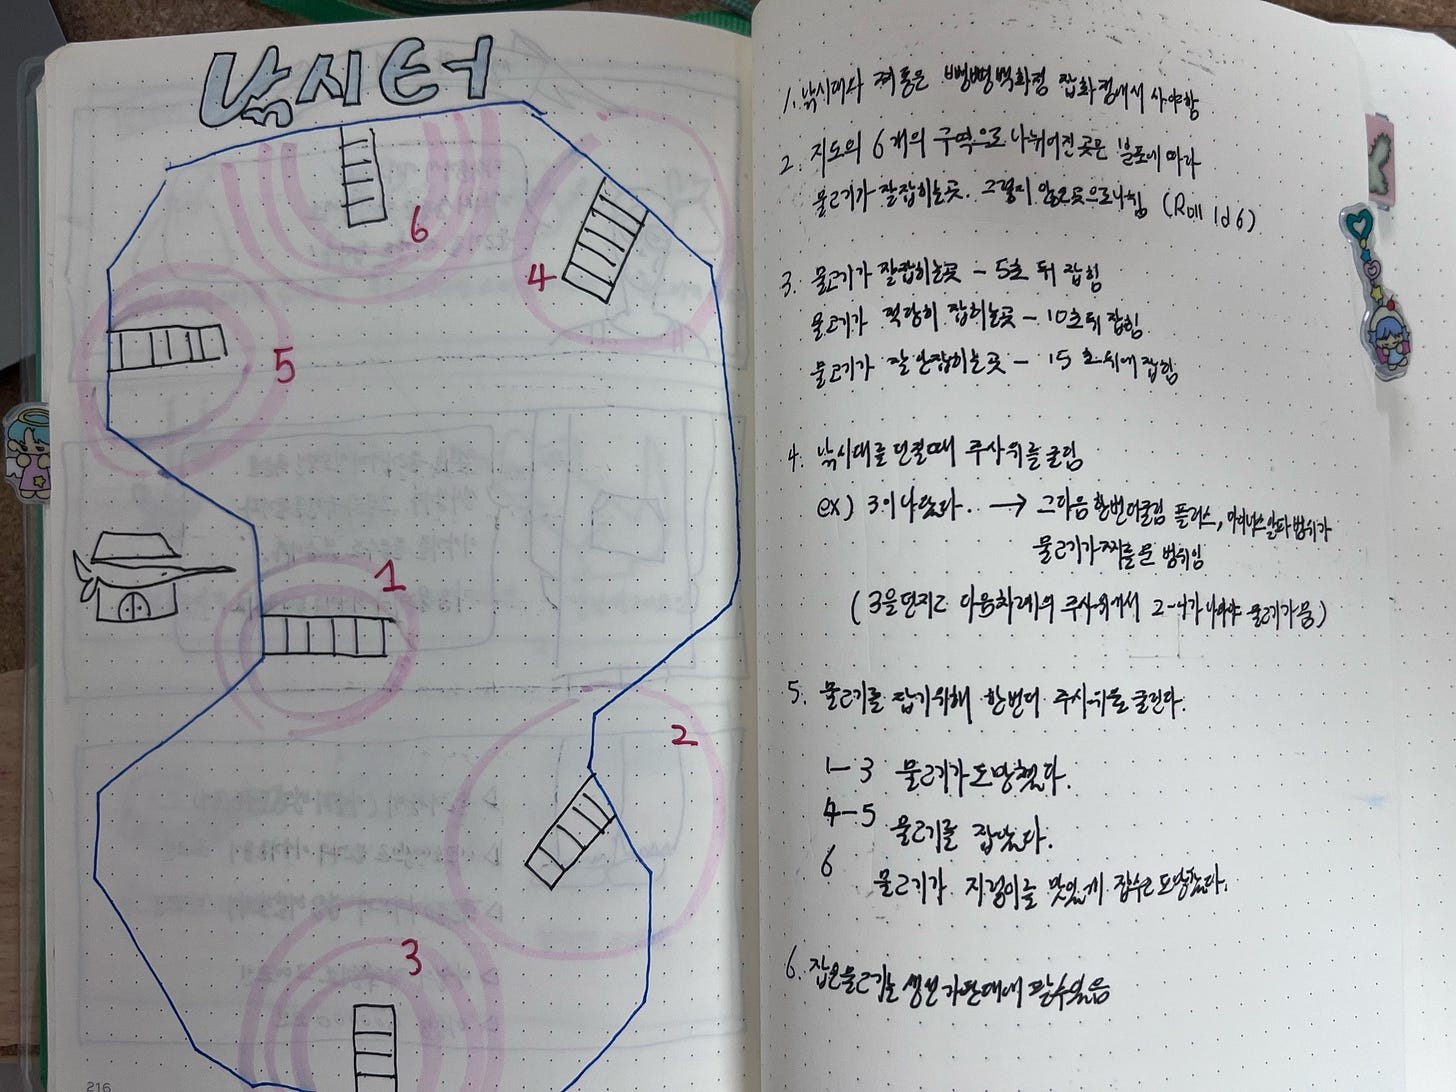 낚시터
6
4
5
1
2
3
216
1. 낚시대와 제품은 빵빵백화점 잡화점에서 사야함
2. 지도의 6개의 구역으로 나뉘어진 곳은 분포에 따라
물고기가 잘잡히는곳. 그렇지 않은곳으로나뉨 (Roll 1d6)
3. 물고기가 잘잡히는곳 - 5초 뒤 잡힘
물고기가 적당히 잡히는곳 - 10초뒤 잡힘
물고기가 잘 안잡히는곳 - 15초 뒤에 잡힘
4. 낚시대를 던질때 주사위를 굴림
ex) 3이 나왔다.. → 그다음 한번더굴림 플러스, 마이너스 알파 범위가
물고기가 찌를 문 범위임
(3을 던지고 다음차례의 주사위에서 2-4가 나와야 물고기가뭄)
5. 물고기를 잡기위해 한번더 주사위를 굴린다.
1-3 물고기가 도망쳤다.
4-5 물고기를 잡았다.
6 물고기가 지렁이를 맛있게 먹구 도망갔다.
6. 잡은물고기는 생선가판대에 팔수있음